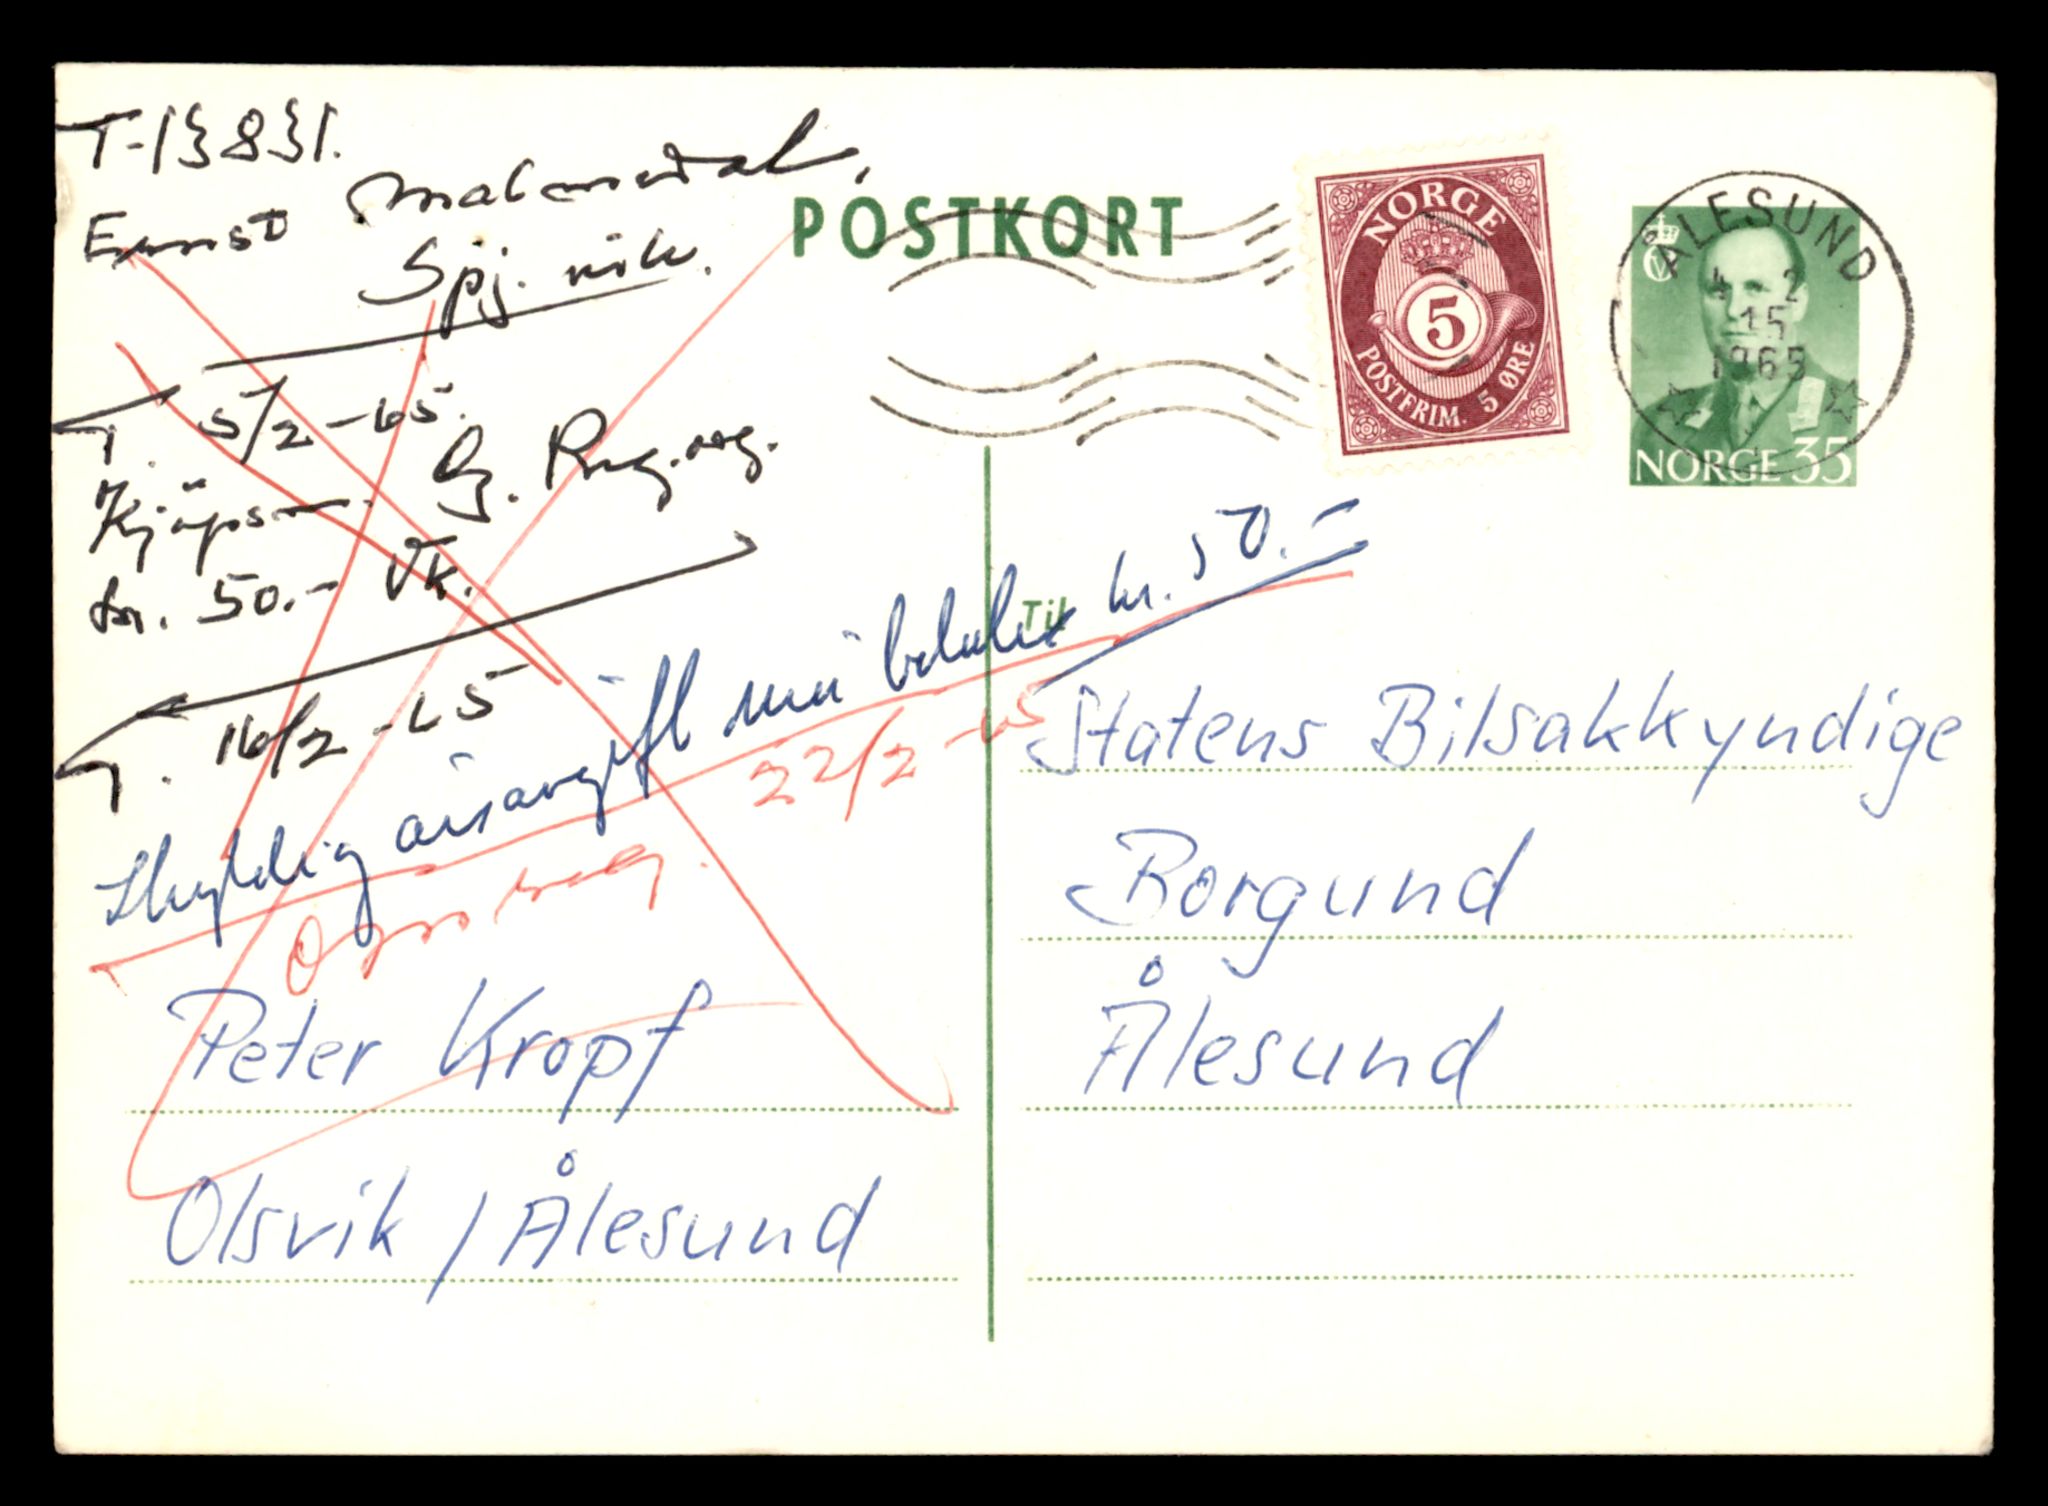 T-13831.
Ernst Malmedal,
Spj. vik.
T. 5/2-65.
Kjøpsm. Og. Reg.avg.
kr. 50.- Vk.
T. 16/2-65
Skyldig årsavgift må betales kr. 50.-
22/2-65
POSTKORT
NORGE
5
POSTFRIM. 5 ØRE
ÅLESUND
4 2
15
1965
NORGE 35
Til
Statens Bilsakkyndige
Borgund
Ålesund
Peter Kropf
Olsvik / Ålesund